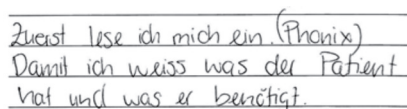 Zuerst lese ich mich ein. (Phönix)
Damit ich weiss was der Patient
hat und was er benötigt.